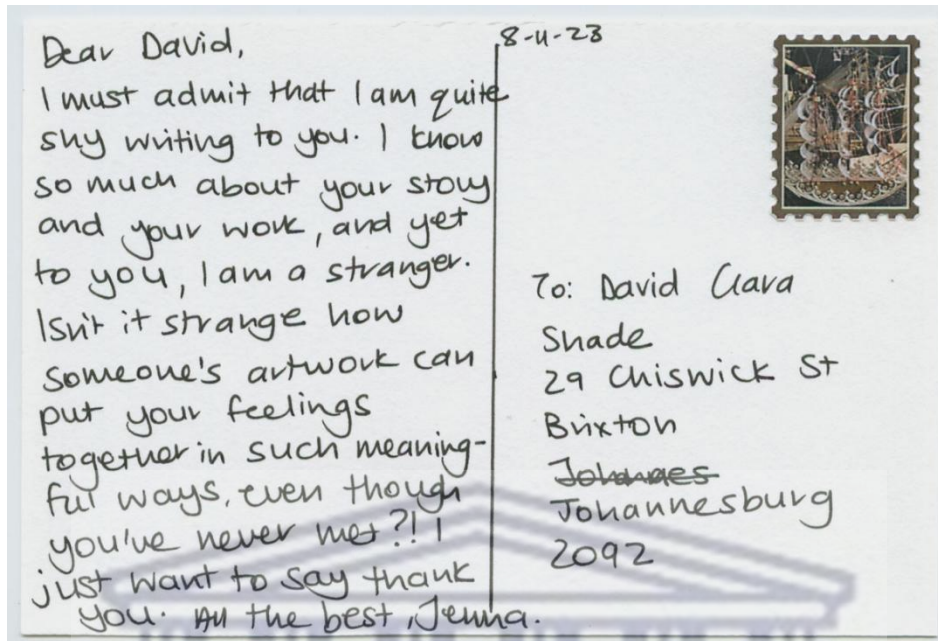 Dear David,
I must admit that I am quite
shy writing to you. I know
so much about your story
and your work, and yet
to you, I am a stranger.
Isn't it strange how
someone's artwork can
put your feelings
together in such meaning-
ful ways, even though
you've never met?! I
just want to say thank
you. All the best, Jenna.
8-4-23
To: David Clara
Shade
29 Chiswick St
Brixton
Johannes
Johannesburg
2092